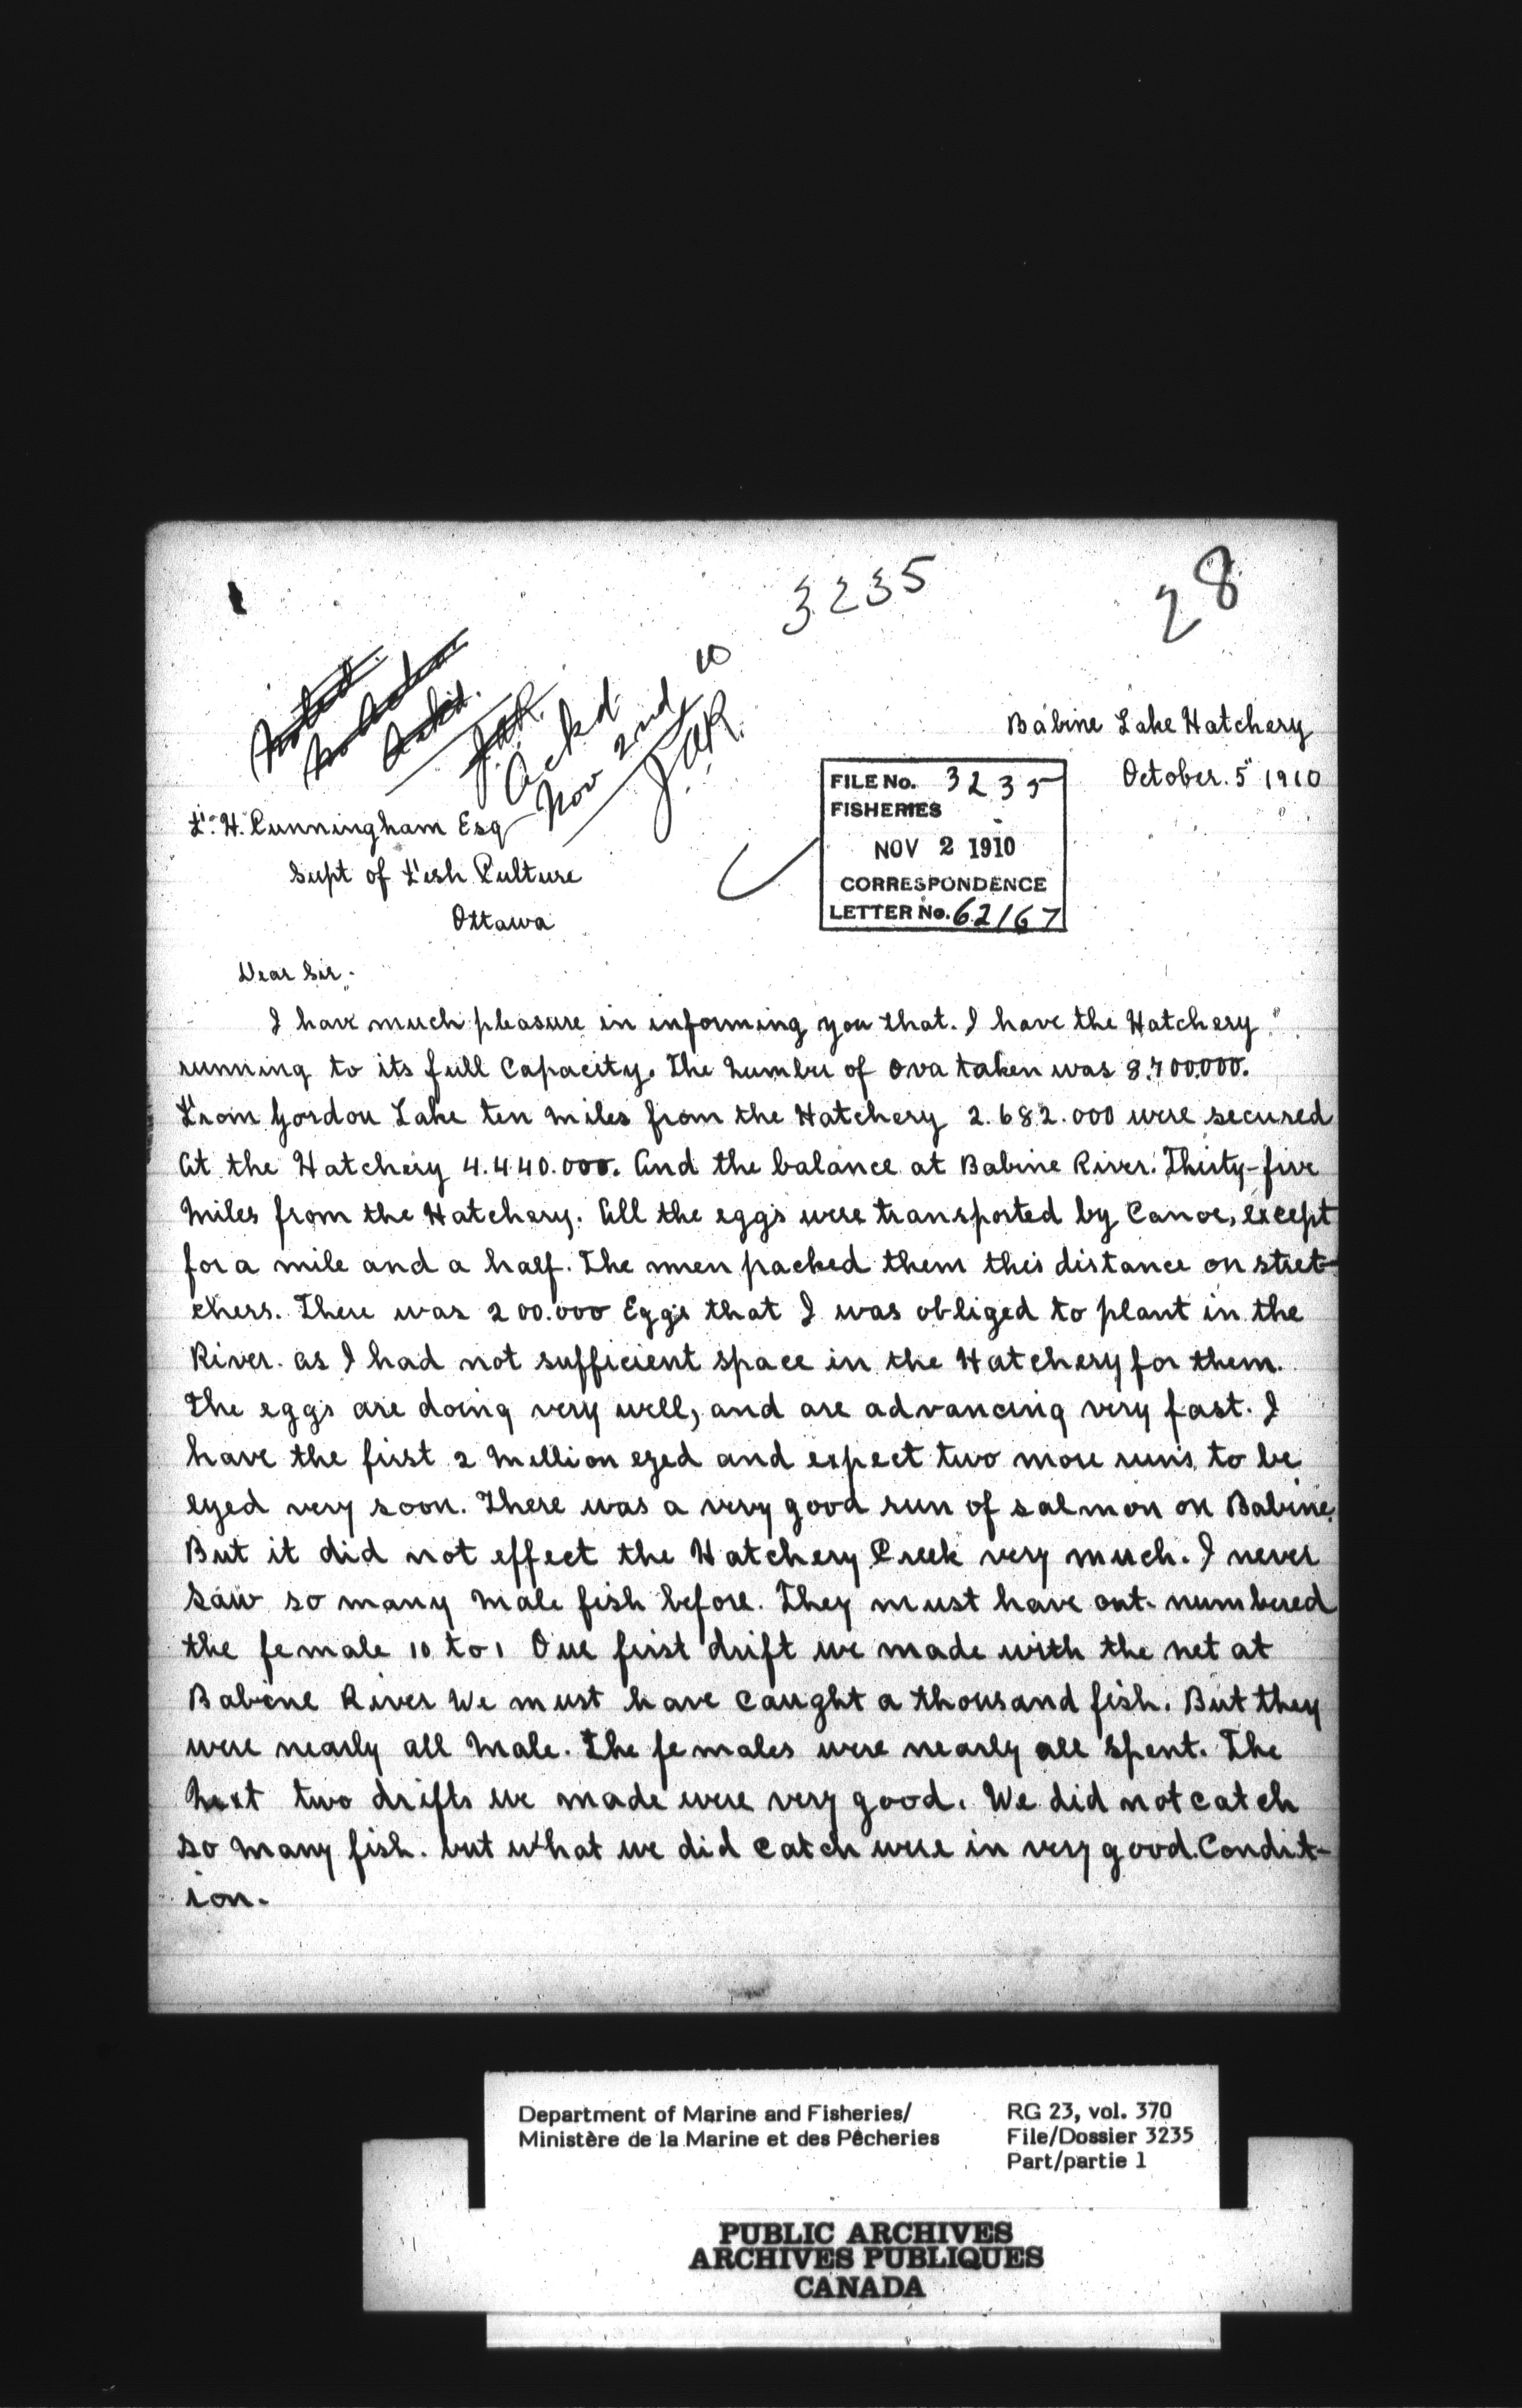 3235
28
Ackd
Nov 2nd 10
J.A.R.
Babine Lake Hatchery
October. 5" 1910
FILE No. 3235
FISHERIES
NOV 2 1910
CORRESPONDENCE
LETTER No. 62167
F. H. Cunningham Esq
Supt of Fish Culture
Ottawa
Dear Sir.
I have much pleasure in informing you that. I have the Hatchery
running to its full Capacity. The Number of Ova taken was 8.700.000.
From Gordon Lake ten Miles from the Hatchery 2.682.000 were secured
At the Hatchery 4.440.000. And the balance at Babine River. Thirty-five
Miles from the Hatchery. All the eggs were transported by Canoe, except
for a mile and a half. The men packed them this distance on stret-
chers. There was 200.000 Eggs that I was obliged to plant in the
River. as I had not sufficient space in the Hatchery for them.
The eggs are doing very well, and are advancing very fast. I
have the first 2 Million eyed and expect two more runs to be
eyed very soon. There was a very good run of salmon on Babine.
But it did not effect the Hatchery Creek very much. I never
saw so many Male fish before. They must have out-numbered
the female 10 to 1 Our first drift we made with the net at
Babine River We must have caught a thousand fish. But they
were nearly all Male. The females were nearly all spent. The
Next two drifts we made were very good. We did not catch
so Many fish. but what we did catch were in very good Condit-
ion.
Department of Marine and Fisheries/
Ministère de la Marine et des Pêcheries
RG 23, vol. 370
File/Dossier 3235
Part/partie 1
PUBLIC ARCHIVES
ARCHIVES PUBLIQUES
CANADA